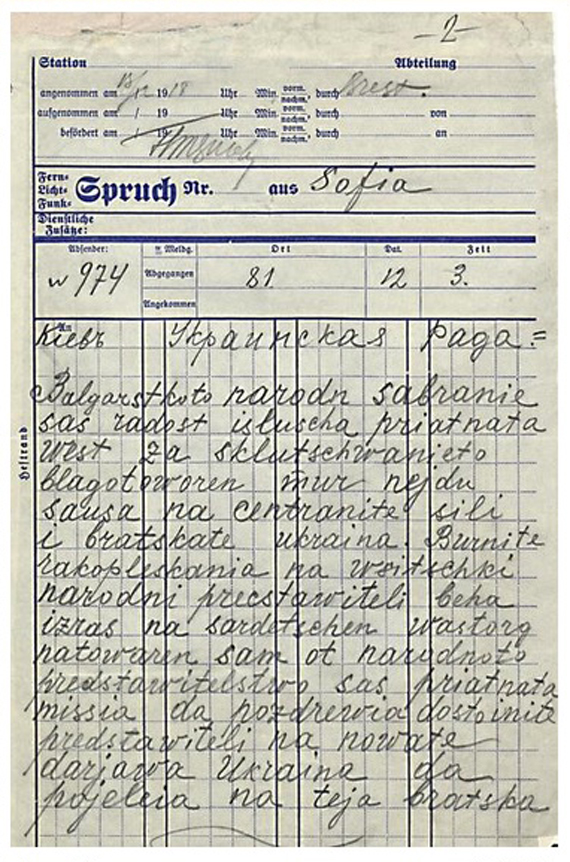 -2-
Station Abteilung
angenommen am 13/12 1918 Uhr Min. vorm. nachm. durch Brest.
aufgenommen am / 19 Uhr Min. vorm. nachm. durch von
befördert am / 19 Uhr Min. vorm. nachm. durch an
Fern-
Licht-
Funk-
Spruch Nr. aus Sofia
Dienstliche
Zusätze:
Absender: Meldg. Ort Dat. Zeit
w 974 Abgegangen 81 12 3.
Angekommen
An
Кіевъ Украинская Рада =
Heftrand
Balgarstkoto narodn sabranie
sas radost isluscha priatnata
west za sklutschwanieto
blagotoworen mur nejdu
sausa na centranite sili
i bratskate ukraina. Burnite
rakopleskania na wsitschki
narodni precstawiteli beha
izras na sardetschen wastorg
natowaren sam ot narodnoto
predstawitelstwo sas priatnata
missia da pozdrewia dostoinite
predstawiteli na nowate
darjawa Ukraina da
pojeleia na teja bratska